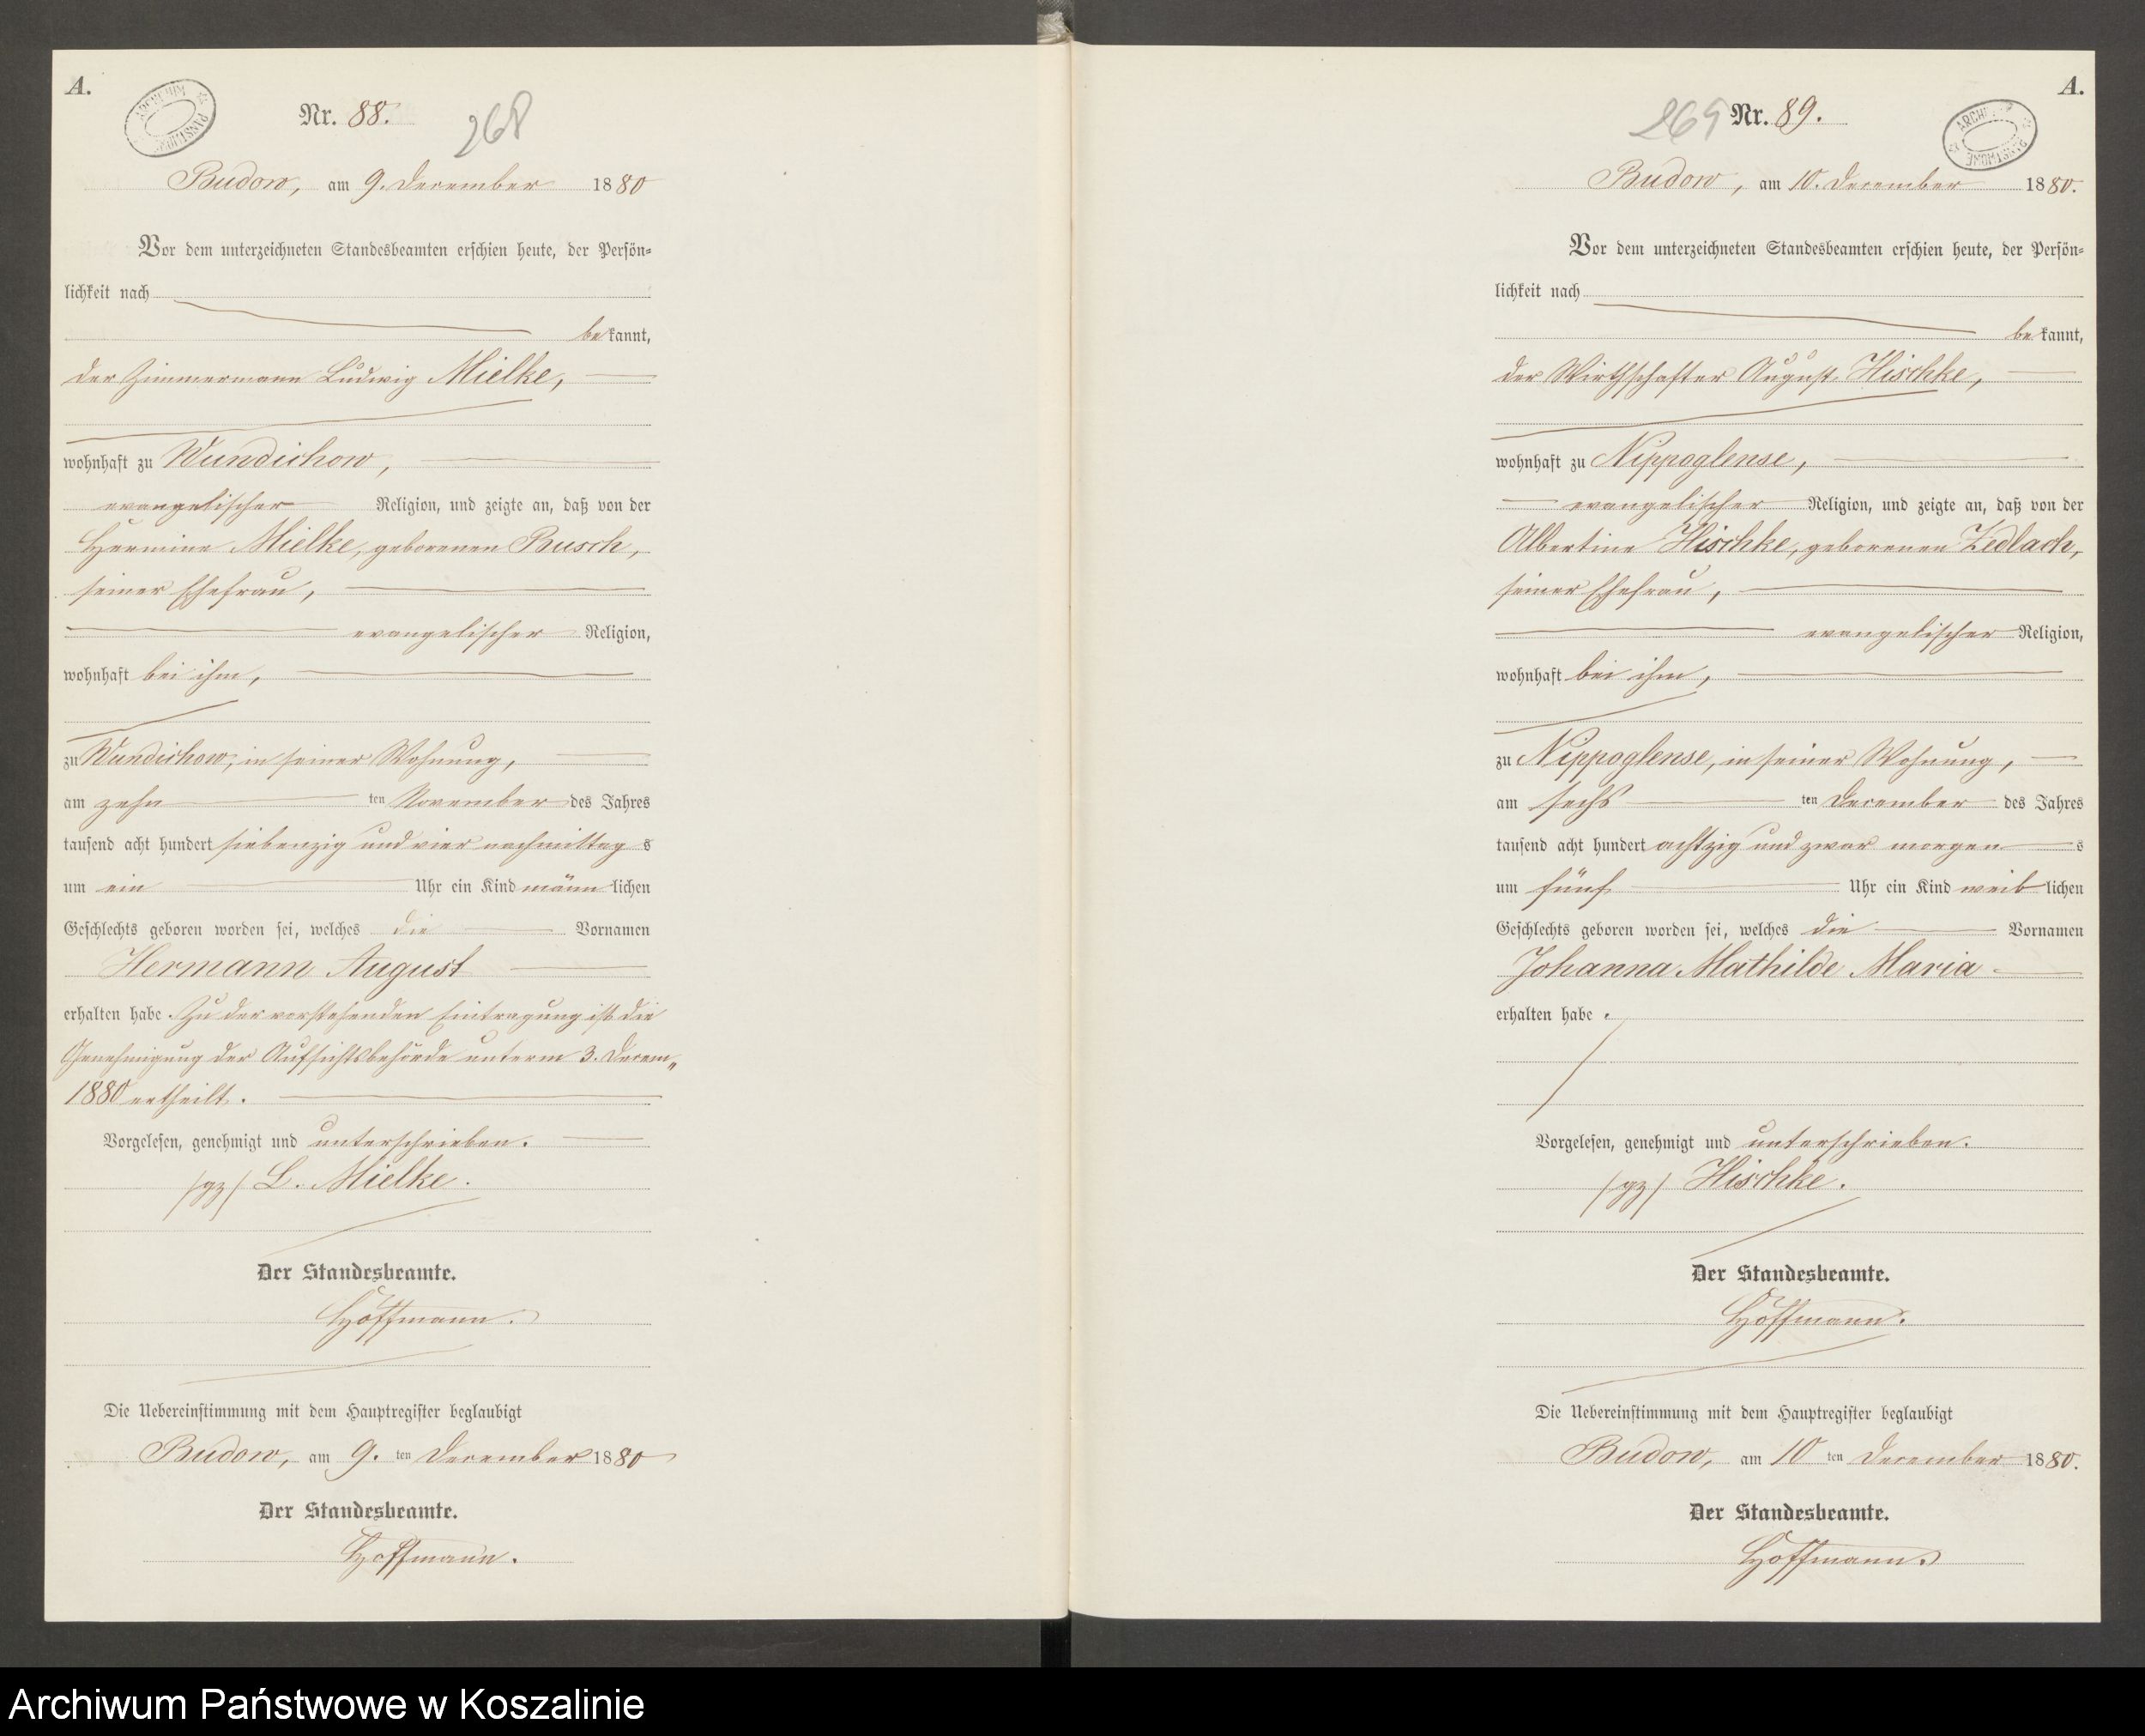 A.
ARCHIWUM PAŃSTWOWE
Nr. 88.
268
Budow, am 9. December 1880
Vor dem unterzeichneten Standesbeamten erschien heute, der Persön-
lichkeit nach
bekannt,
der Zimmermann Ludwig Mielke,
wohnhaft zu Wundichow,
evangelischer Religion, und zeigte an, daß von der
Hermine Mielke, geborenen Busch,
seiner Ehefrau,
evangelischer Religion,
wohnhaft bei ihm,
zu Wundichow, in seiner Wohnung,
am zehn ten November des Jahres
tausend acht hundert siebenzig und vier nachmittag s
um ein Uhr ein Kind männ lichen
Geschlechts geboren worden sei, welches die Vornamen
Hermann August
erhalten habe. Zu der vorstehenden Eintragung ist die
Genehmigung der Aufsichtsbehörde unterm 3. Decem„
1880 ertheilt.
Vorgelesen, genehmigt und unterschrieben.
/gz/ L. Mielke.
Der Standesbeamte.
Hoffmann.
Die Uebereinstimmung mit dem Hauptregister beglaubigt
Budow, am 9. ten December 1880
Der Standesbeamte.
Hoffmann.
A.
269 Nr. 89.
ARCHIWUM PAŃSTWOWE
Budow, am 10. December 1880.
Vor dem unterzeichneten Standesbeamten erschien heute, der Persön-
lichkeit nach
bekannt,
der Wirthschafter August Hischke,
wohnhaft zu Nippoglense,
evangelischer Religion, und zeigte an, daß von der
Albertine Hischke, geborenen Zedlach,
seiner Ehefrau,
evangelischer Religion,
wohnhaft bei ihm,
zu Nippoglense, in seiner Wohnung,
am sechs ten December des Jahres
tausend acht hundert achtzig und zwar morgen s
um fünf Uhr ein Kind weib lichen
Geschlechts geboren worden sei, welches die Vornamen
Johanna Mathilde Maria
erhalten habe.
Vorgelesen, genehmigt und unterschrieben.
/gz/ Hischke.
Der Standesbeamte.
Hoffmann.
Die Uebereinstimmung mit dem Hauptregister beglaubigt
Budow, am 10 ten December 1880.
Der Standesbeamte.
Hoffmann.
Archiwum Państwowe w Koszalinie